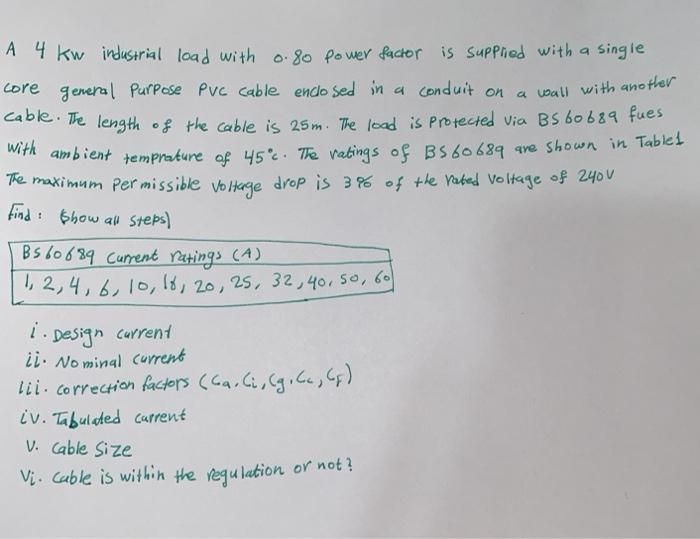 A 4 Kw industrial load with 0.80 Power factor is supplied with a single
core general Purpose PVC cable enclosed in a conduit on a wall with another
cable. The length of the cable is 25m. The load is Protected via BS 60689 fues
with ambient temprature of 45°C. The ratings of BS60689 are shown in Table1
The maximum permissible voltage drop is 3% of the rated voltage of 240V
Find: (show all steps)
BS60689 current ratings (A)
1, 2, 4, 6, 10, 16, 20, 25, 32, 40, 50, 60
i. Design current
ii. Nominal current
iii. correction factors (Ca, Ci, Cg, Cc, CF)
iv. Tabulated current
V. Cable Size
Vi. Cable is within the regulation or not?